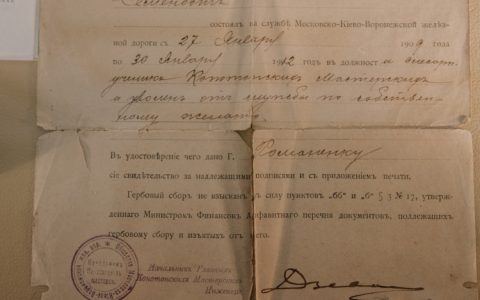 состоялъ на службѣ Московско-Кіево-Воронежской желѣз-
ной дороги съ 27 Января 1909 года
по 30 Января 1912 годъ въ должности
ученика Конотопскихъ Мастерскихъ
а уволенъ отъ службы по собствен-
ному желанію
Въ удостовѣреніе чего дано Г. Романенку
сіе свидѣтельство за надлежащими подписями и съ приложеніемъ печати.
Гербовый сборъ не взысканъ въ силу пунктовъ „бб“ и „б“ § 3 № 17, утверж-
деннаго Министромъ Финансовъ Алфавитнаго перечня документовъ, подлежащихъ
гербовому сбору и изъятыхъ отъ него.
Начальникъ Главныхъ
Конотопскихъ Мастерскихъ
Инженеръ